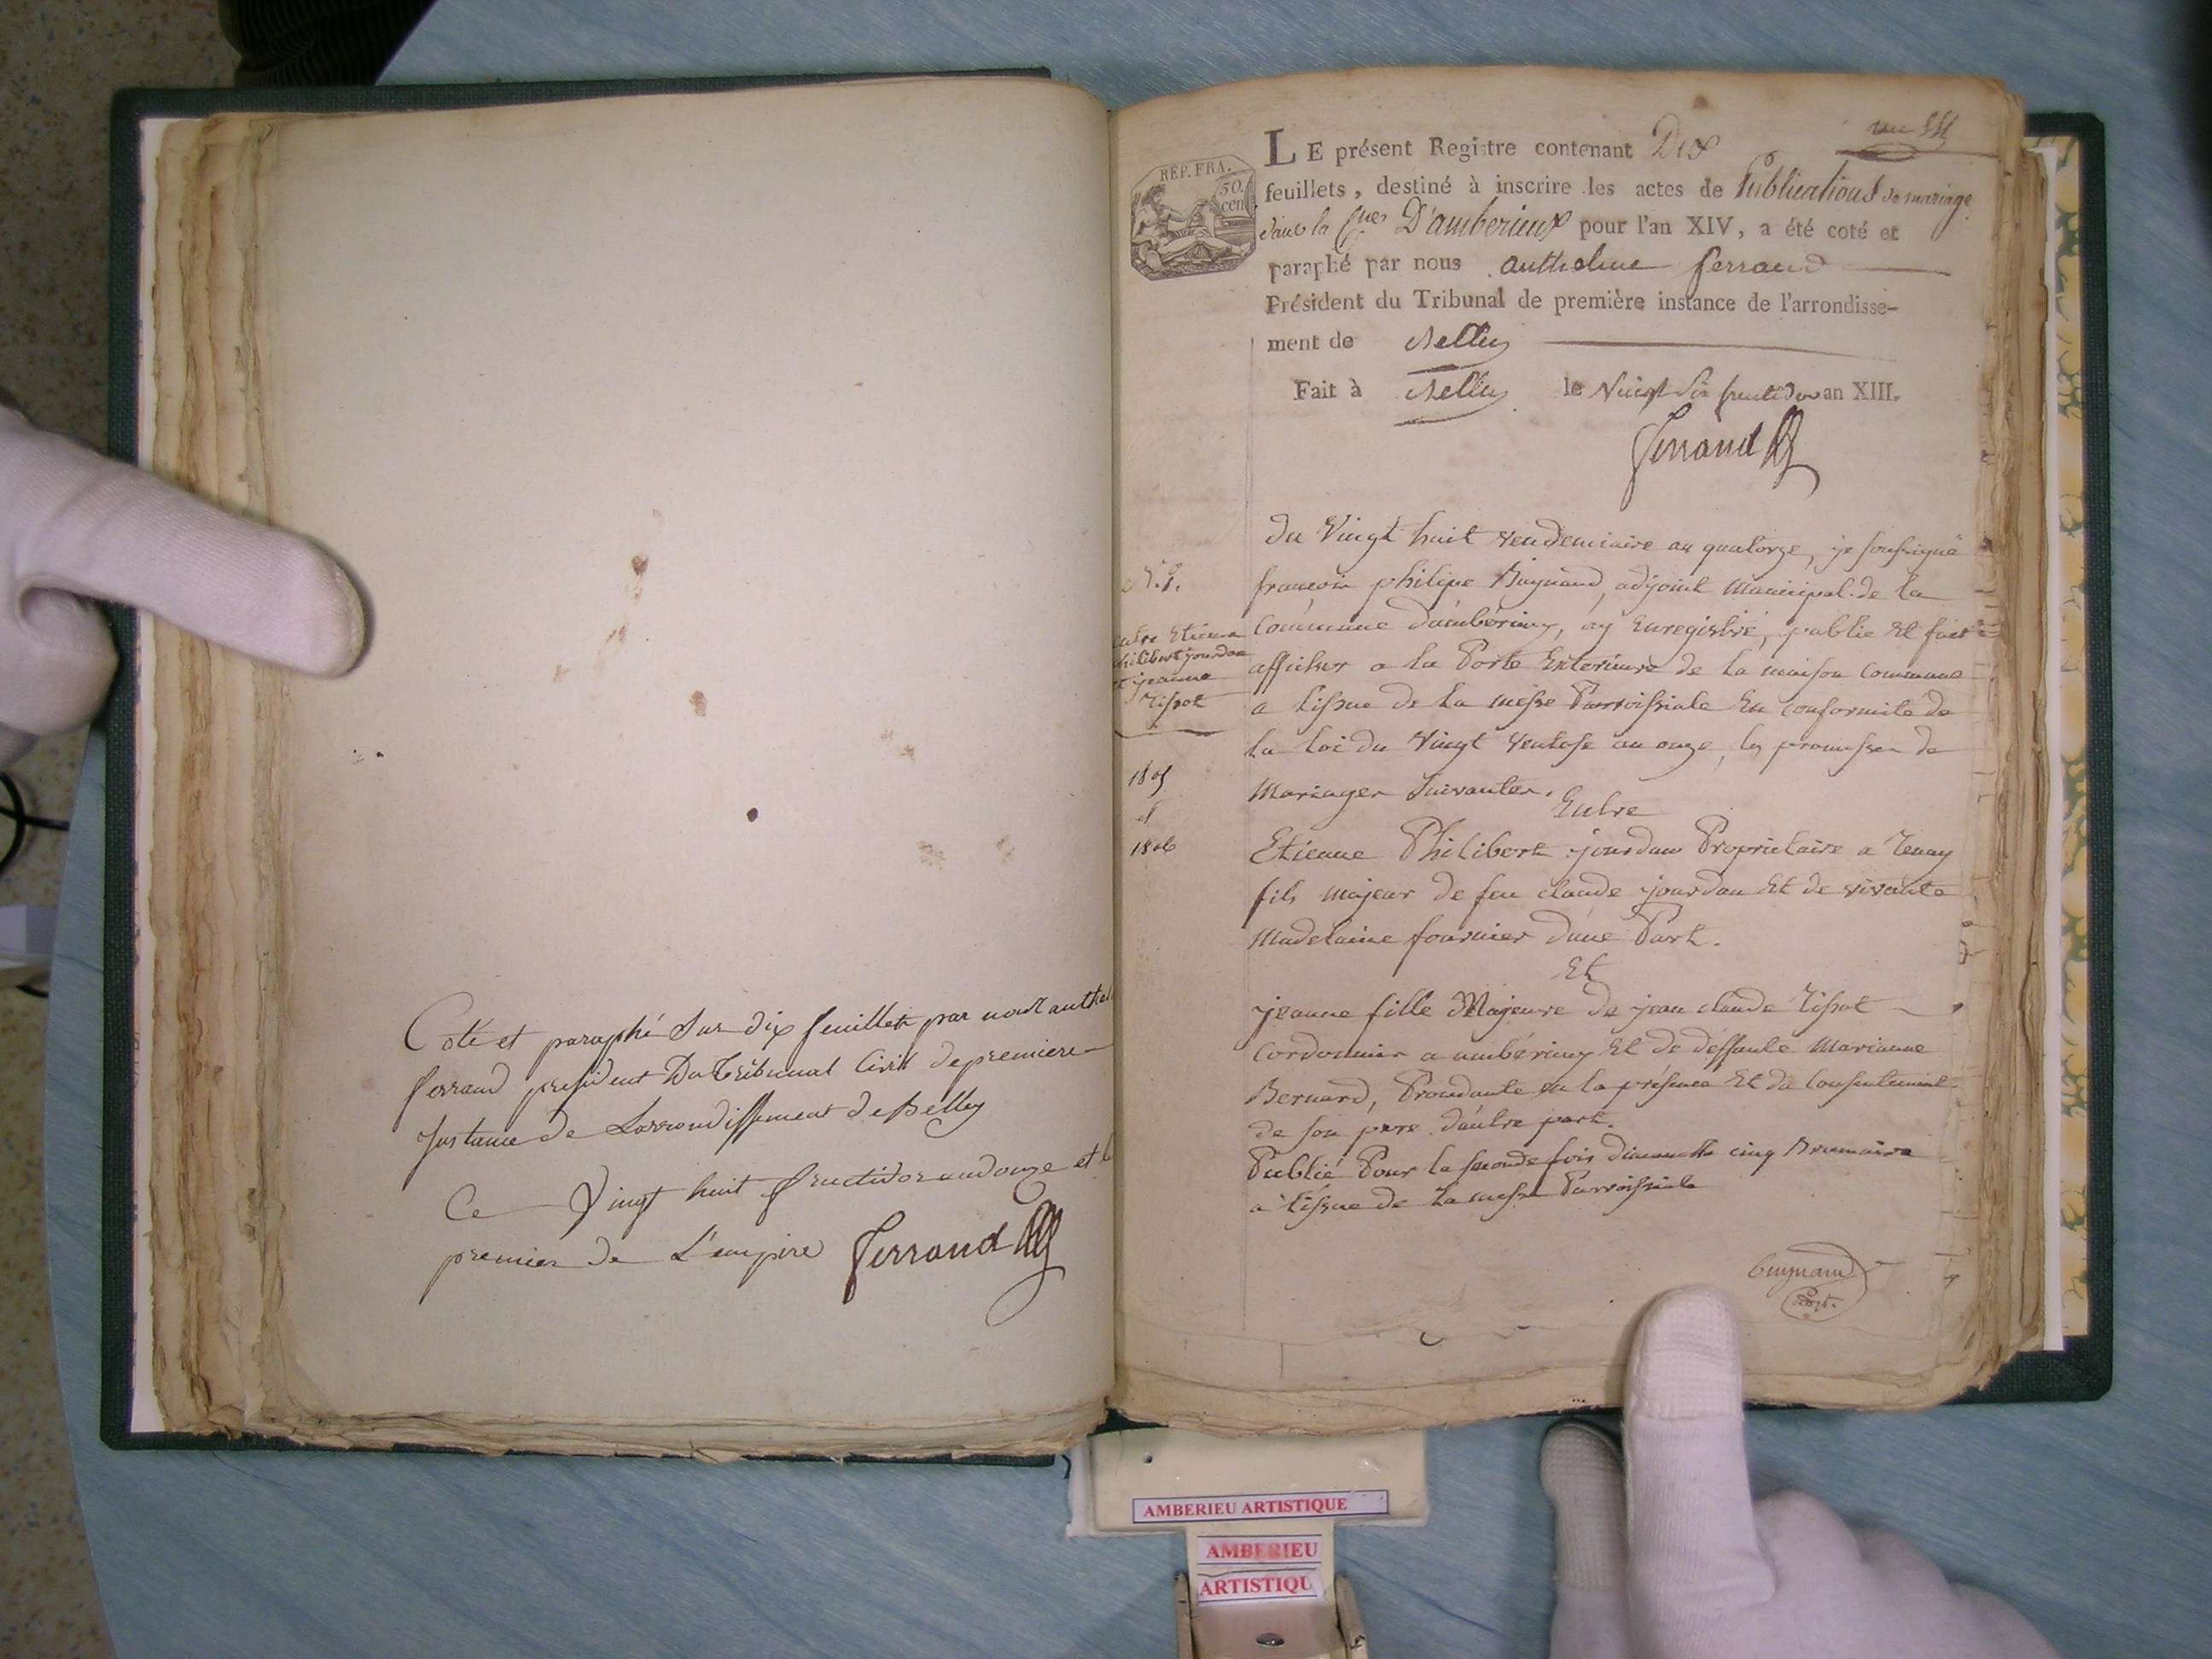 Coté et paraphé Sur dix feuillets par nous anthel
ferrand president Du Tribunal Civil de premiere
Instance de Larrondissement de Belley
Ce Vingt huit fructidor an douze et le
premier de L'empire Ferrand
un
REP. FRA.
50.
cen
LE présent Registre contenant Dix
feuillets, destiné à inscrire les actes de Publications de mariage
dans la Cne D'amberieux pour l'an XIV, a été coté et
paraphé par nous anthelme ferrand
Président du Tribunal de première instance de l'arrondisse-
ment de Belley
Fait à Belley le Vingt Six fructidor an XIII.
Ferrand
N.º 1.
entre Etienne
philibert jourdan
et jeanne
Tissot
1805
et
1806
Du Vingt huit vendemiaire an quatorze, je soussigné
francois philipe adjoint Municipal de la
Commune d'ambérieux, ay Enregistré, publié Et fait
afficher a la Porte Exterieure de la maison Commune
a l'issue de la messe Parroissiale En conformité de
la loi du Vingt Ventose an onze, les promesses de
Mariages Suivantes.
Entre
Etienne Philibert jourdan Proprietaire a Tenay
fils majeur de feu claude jourdan Et de vivante
Madelaine fournier d'une Part.
Et
jeanne fille Majeure de jean claude Tissot
Cordonnier a ambérieux Et de deffunte Marianne
Bernard, Procedante en la présence Et du Consentement
de son pere d'autre part.
Publié Pour la seconde fois dimanche cinq Brumaire
a l'issue de la messe Parroissiale
AMBERIEU ARTISTIQUE
AMBERIEU
ARTISTIQU